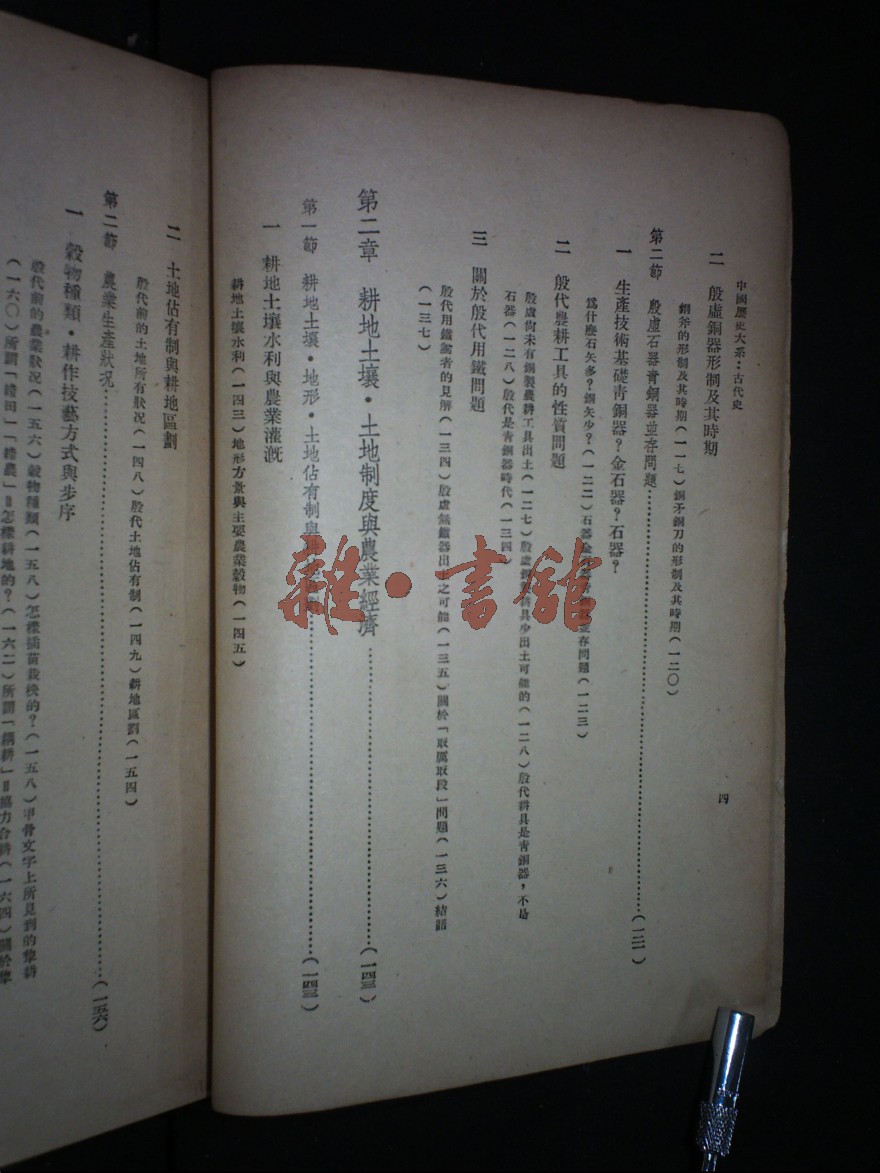 中國歷史大系：古代史
四
二 殷虛銅器形制及其時期
銅斧的形制及其時期（一一七）銅矛銅刀的形制及其時期（一二〇）
第二節 殷虛石器青銅器並存問題……（一二一）
一 生產技術基礎青銅器？金石器？石器？
爲什麽石矢多？銅矢少？（一二二）石器金 並存問題（一二三）
二 殷代農耕工具的性質問題
殷虛尙未有銅製農耕工具出土（一二七）殷虛 耕具少出土可能的（一二八）殷代耕具是青銅器，不是
石器（一二八）殷代是青銅器時代（一三四）
三 關於殷代用鐵問題
殷代用鐵論者的見解（一三四）殷虛無鐵器出土之可能（一三五）關於「取厲取段」問題（一三六）結語
（一三七）
第二章 耕地土壤·土地制度與農業經濟……（一四三）
第一節 耕地土壤·地形·土地佔有制與耕地區劃……（一四三）
一 耕地土壤水利與農業灌漑
耕地土壤水利（一四三）地形方景與主要農業穀物（一四五）
二 土地佔有制與耕地區劃
殷代前的土地所有狀況（一四八）殷代土地佔有制（一四九）耕地區劃（一五四）
第二節 農業生產狀况……（一五六）
一 穀物種類·耕作技藝方式與步序
殷代前的農業狀況（一五六）穀物種類（一五八）怎樣插苗栽秧的？（一五八）甲骨文字上所見到的犂耕
（一六〇）所謂「耤田」「耤農」＝怎樣耕地的？（一六二）所謂「耦耕」＝協力合耕（一六四）關於犂
雜·書館